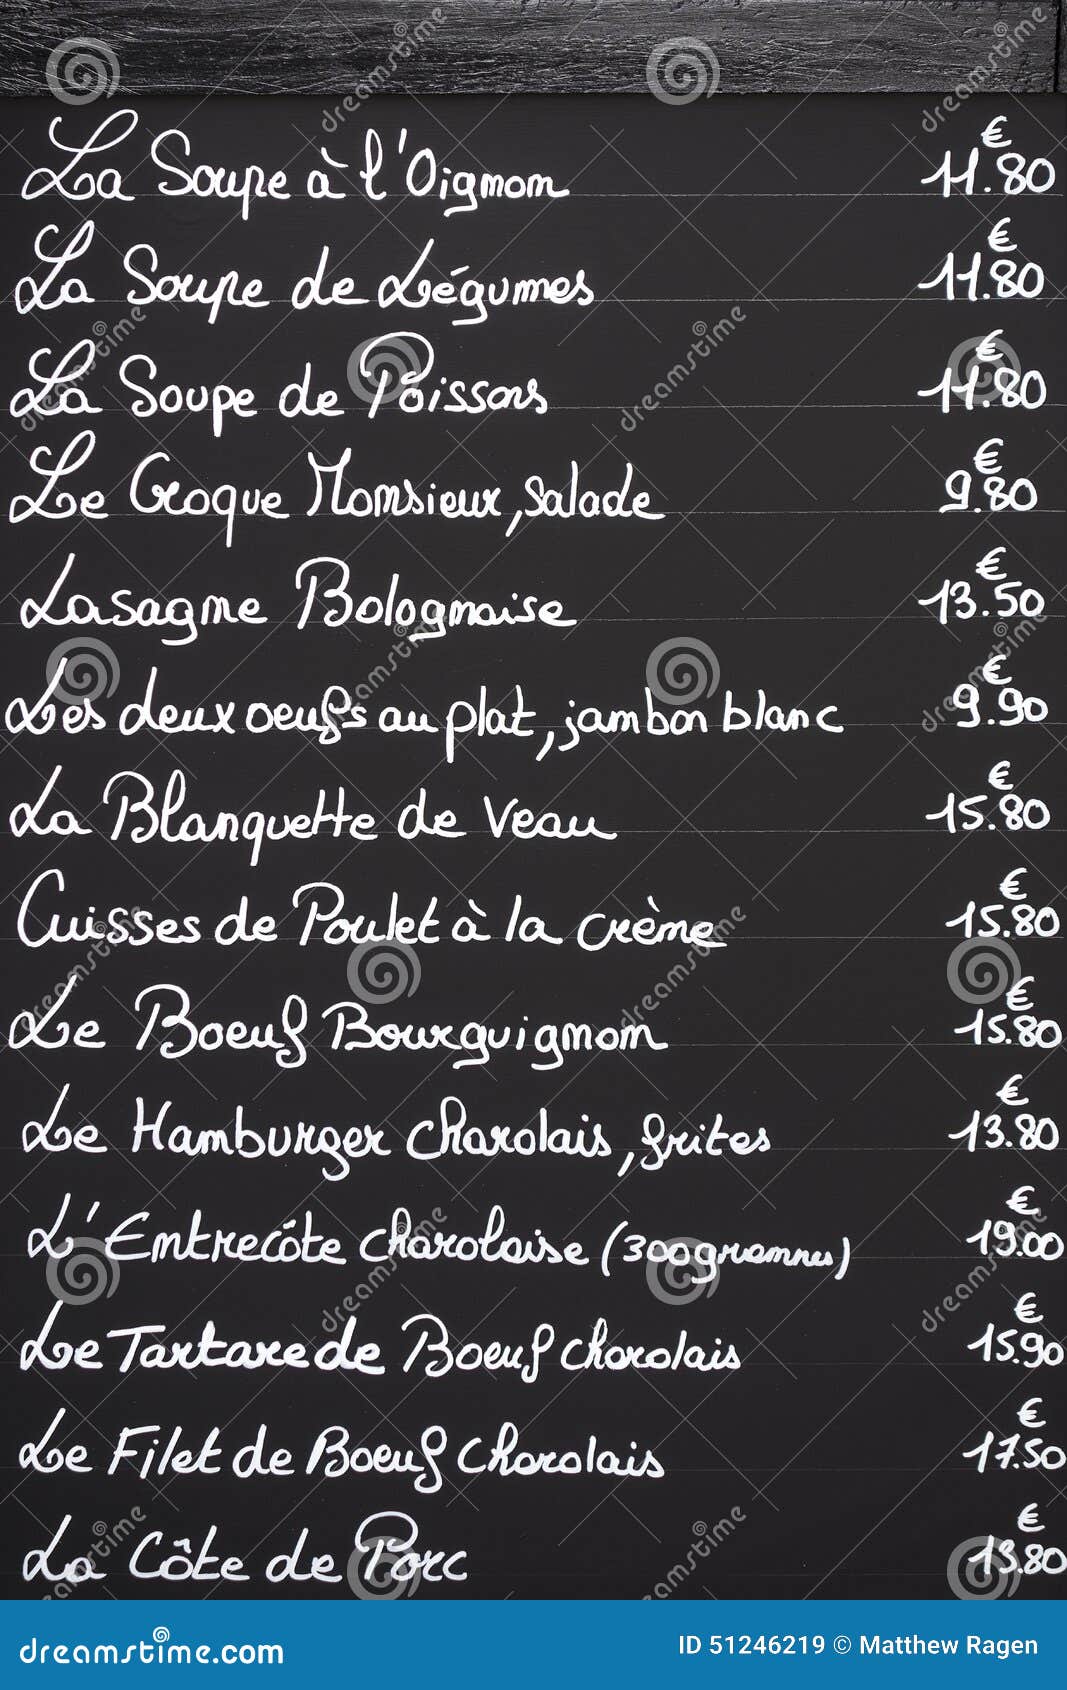 La Soupe à l'Oignon €11.80
La Soupe de Légumes €11.80
La Soupe de Poissons €11.80
Le Croque Monsieur, salade €9.80
Lasagne Bolognaise €13.50
Les deux oeufs au plat, jambon blanc €9.90
La Blanquette de Veau €15.80
Cuisses de Poulet à la crème €15.80
Le Boeuf Bourguignon €15.80
Le Hamburger charolais, frites €13.80
L'Entrecôte charolaise (300grammes) €19.00
Le Tartare de Boeuf charolais €15.90
Le Filet de Boeuf charolais €17.50
La Côte de Porc €13.80
dreamstime.com ID 51246219 © Matthew Ragen